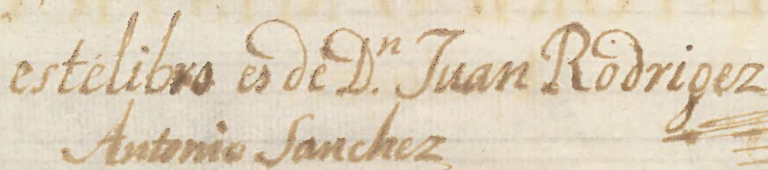 esté libro es de D.n Juan Rodrigez
Antonio Sanchez